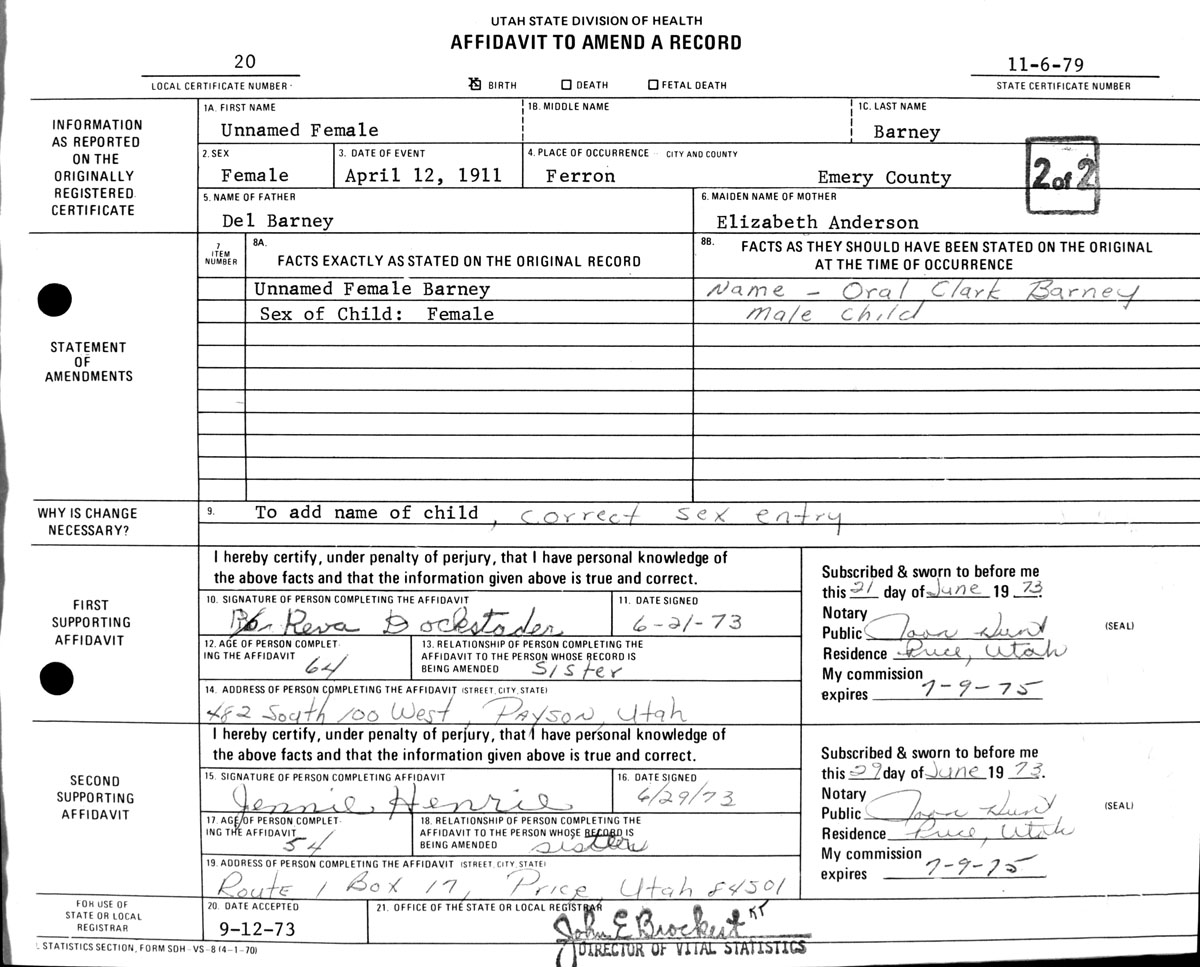 UTAH STATE DIVISION OF HEALTH
AFFIDAVIT TO AMEND A RECORD
20
LOCAL CERTIFICATE NUMBER
☒ BIRTH ☐ DEATH ☐ FETAL DEATH
11-6-79
STATE CERTIFICATE NUMBER
INFORMATION
AS REPORTED
ON THE
ORIGINALLY
REGISTERED
CERTIFICATE
1A. FIRST NAME
Unnamed Female
1B. MIDDLE NAME
1C. LAST NAME
Barney
2. SEX
Female
3. DATE OF EVENT
April 12, 1911
4. PLACE OF OCCURRENCE - CITY AND COUNTY
Ferron Emery County
2 of 2
5. NAME OF FATHER
Del Barney
6. MAIDEN NAME OF MOTHER
Elizabeth Anderson
STATEMENT
OF
AMENDMENTS
7
ITEM
NUMBER
8A.
FACTS EXACTLY AS STATED ON THE ORIGINAL RECORD
8B. FACTS AS THEY SHOULD HAVE BEEN STATED ON THE ORIGINAL
AT THE TIME OF OCCURRENCE
Unnamed Female Barney
Name - Oral Clark Barney
Sex of Child: Female
Male child
WHY IS CHANGE
NECESSARY?
9. To add name of child, correct sex entry
FIRST
SUPPORTING
AFFIDAVIT
I hereby certify, under penalty of perjury, that I have personal knowledge of
the above facts and that the information given above is true and correct.
10. SIGNATURE OF PERSON COMPLETING THE AFFIDAVIT
Reva Dockstader
11. DATE SIGNED
6-21-73
12. AGE OF PERSON COMPLET-
ING THE AFFIDAVIT 64
13. RELATIONSHIP OF PERSON COMPLETING THE
AFFIDAVIT TO THE PERSON WHOSE RECORD IS
BEING AMENDED Sister
14. ADDRESS OF PERSON COMPLETING THE AFFIDAVIT (STREET, CITY, STATE)
482 South 100 West, Payson, Utah
Subscribed & sworn to before me
this 21 day of June 19 73
Notary
Public Joan Hunt
Residence Price, Utah
My commission
expires 7-9-75
(SEAL)
SECOND
SUPPORTING
AFFIDAVIT
I hereby certify, under penalty of perjury, that I have personal knowledge of
the above facts and that the information given above is true and correct.
15. SIGNATURE OF PERSON COMPLETING AFFIDAVIT
Jennie Henrie
16. DATE SIGNED
6/29/73
17. AGE OF PERSON COMPLET-
ING THE AFFIDAVIT 54
18. RELATIONSHIP OF PERSON COMPLETING THE
AFFIDAVIT TO THE PERSON WHOSE RECORD IS
BEING AMENDED sister
19. ADDRESS OF PERSON COMPLETING THE AFFIDAVIT (STREET, CITY, STATE)
Route 1 Box 17, Price, Utah 84501
Subscribed & sworn to before me
this 29 day of June 19 73.
Notary
Public Joan Hunt
Residence Price, Utah
My commission
expires 7-9-75
(SEAL)
FOR USE OF
STATE OR LOCAL
REGISTRAR
20. DATE ACCEPTED
9-12-73
21. OFFICE OF THE STATE OR LOCAL REGISTRAR
John E Brockert KT
DIRECTOR OF VITAL STATISTICS
STATISTICS SECTION, FORM SDH-VS-8 (4-1-70)